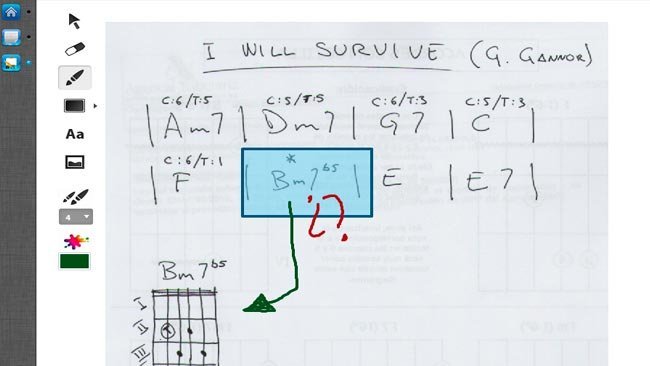 I WILL SURVIVE (G. GANNOR)
C:6/T:5 C:5/T:5 C:6/T:3 C:5/T:3
| Am7 | Dm7 | G7 | C |
C:6/T:1 *
| F | Bm7b5 | E | E7 |
¿?
Aa
4
Bm7b5
I
II
III